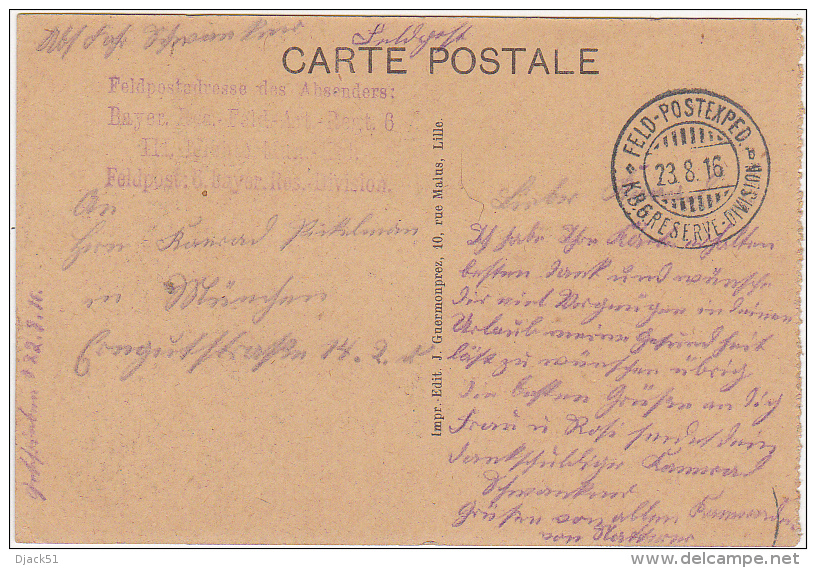 Feldpost
CARTE POSTALE
Feldpostadresse des Absenders:
Bayer. Res.-Feld-Art.-Regt. 6
Feldpost: 6. Bayer. Res.-Division.
FELD-POSTEXPED.
23.8.16
K.B.6.RESERVE-DIVISION
An
Herrn Konrad
in München
14. 2.
Geschrieben 22.8.16.
Impr.-Edit. J. Guermonprez, 10, rue Malus, Lille.
Lieber
Ich habe Ihre Karte erhalten
besten Dank und wünsche
dir viel Vergnügen in deinem
Urlaub meine Gesundheit
läst zu wünschen übrig
die besten Grüße an dich
Frau u. Rosi sendet dein
dankschuldige Kamerad
Grüße von allen Kameraden
von
Djack51
delcampe.net